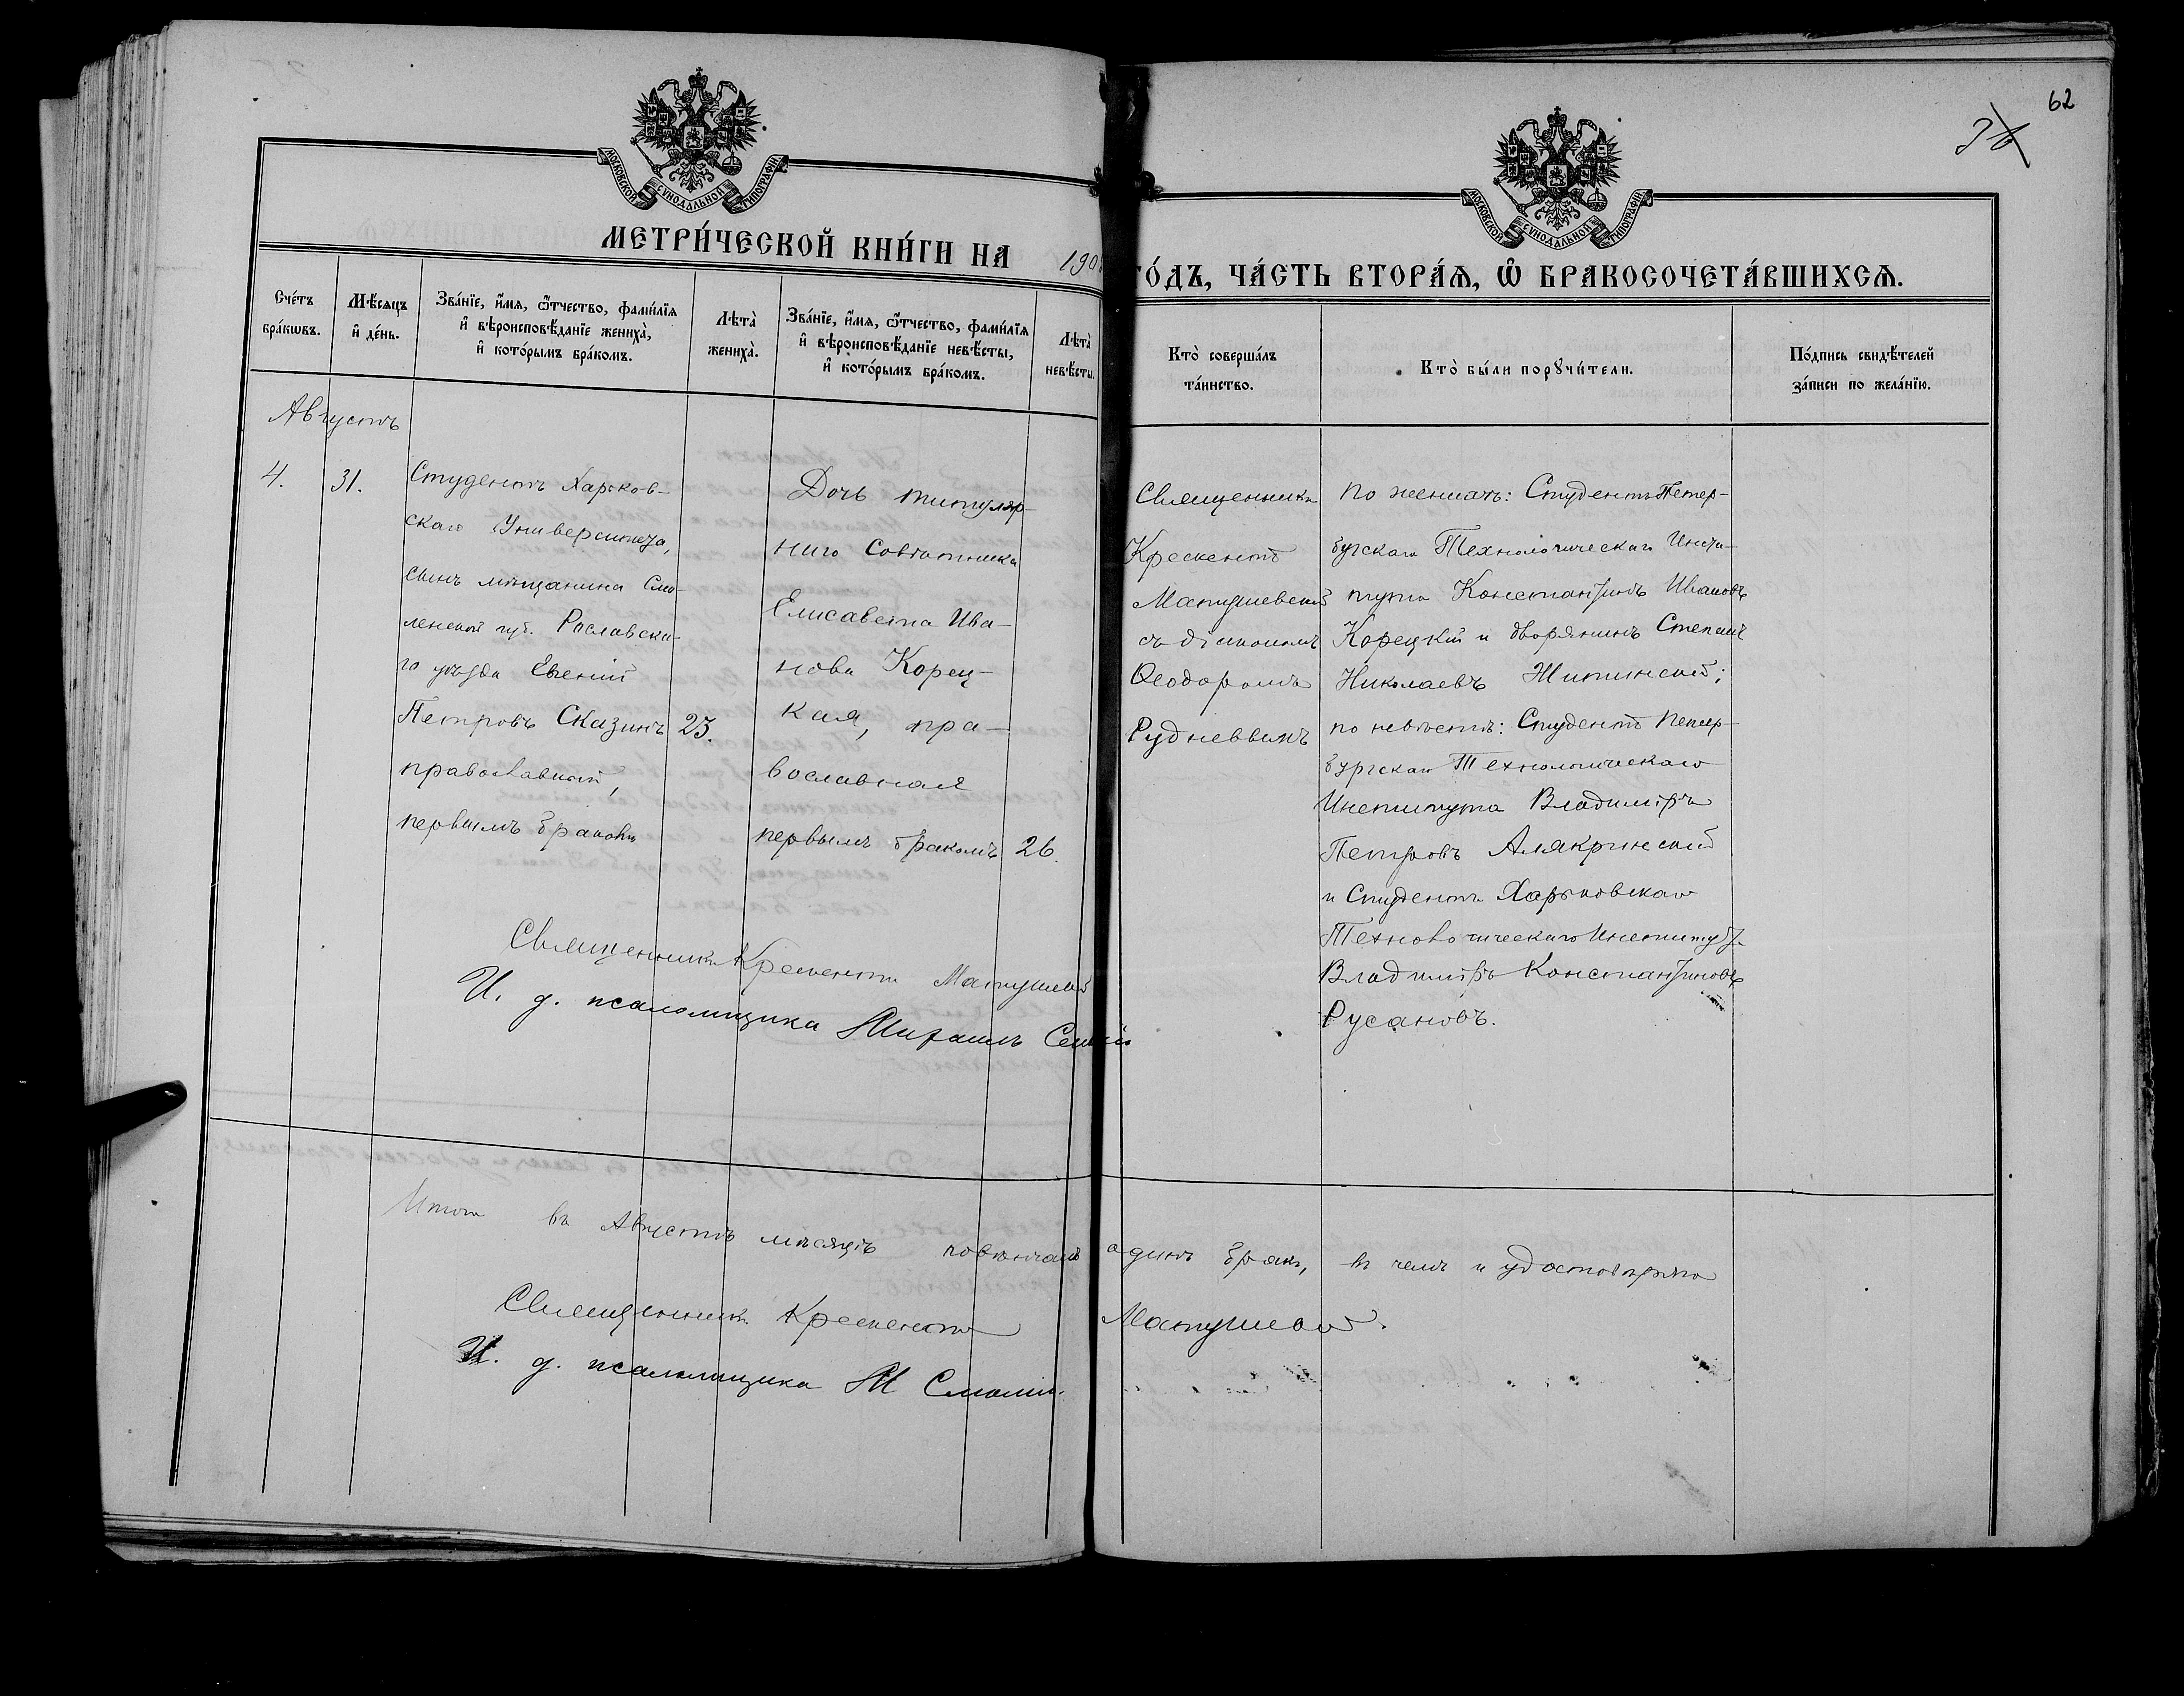 62
МОСКОВСКОЙ СУНОДАЛЬНОЙ ТИПОГРАФІИ
МОСКОВСКОЙ СУНОДАЛЬНОЙ ТИПОГРАФІИ
МЕТРИ́ЧЕСКОЙ КНИ́ГИ НА 190
ГО́ДЪ, ЧА́СТЬ ВТОРА́Ѧ, Ѡ҃ БРАКОСОЧЕТА́ВШИХСѦ.
Сче́тъ
бра́кѡвъ.
Мѣ́сяцъ
и҆ де́нь.
Зва́нїе, и҆́мя, ѻ҆́тчество, фами́лїя
и҆ вѣроисповѣ́данїе жениха̀,
и҆ кото́рымъ бра́комъ.
Лѣта̀
жениха̀.
Зва́нїе, и҆́мя, ѻ҆́тчество, фами́лїя
и҆ вѣроисповѣ́данїе невѣ́сты,
и҆ кото́рымъ бра́комъ.
Лѣта̀
невѣ́сты.
Кто̀ соверша́лъ
та́инство.
Кто̀ бы́ли порꙋчи́тели.
По́дпись свидѣ́телей
за́писи по жела́нїю.
Августъ
4.
31.
Студентъ Харьков-
скаго Университета,
сынъ мѣщанина Смо-
ленской губ. Рославска-
го уѣзда Евгеній
Петровъ Сказинъ
православный,
первымъ бракомъ
25.
Дочь титуляр-
наго Совѣтника
Елисавета Ива-
нова Корец-
кая, пра-
вославная
первымъ бракомъ
26.
Священникъ
Крескентъ
Матушевскій
съ діакономъ
Ѳеодоромъ
Рудневвымъ
по женихѣ: Студентъ Петер-
бугскаго Технологическаго Инсти-
тута Константинъ Ивановъ
Корецкій и дворянинъ Степанъ
Николаевъ Житинскій;
по невѣстѣ: Студентъ Петер-
бургскаго Технологическаго
Института Владиміръ
Петровъ Алякринскій
и Студентъ Харьковскаго
Технологическаго Института
Владиміръ Константиновъ
Русановъ.
Священникъ Крескентъ Матушевс
И. д. псаломщика Михаилъ
Итого въ Августѣ мѣсяцѣ повѣнчанъ одинъ бракъ, въ чемъ и удостовѣряю
Священникъ Крескентъ Матушевс.
И. д. псаломщика М